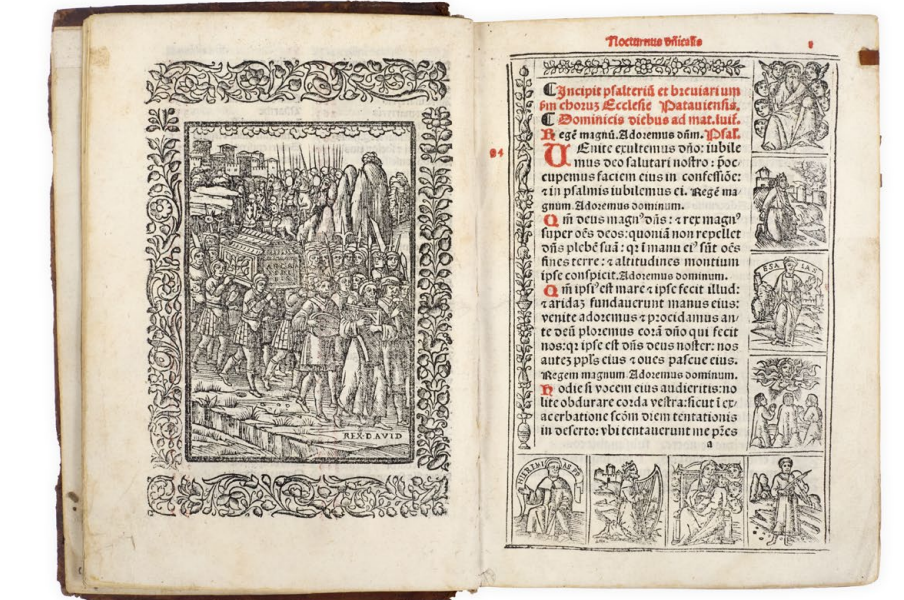 REX·DAVID
Nocturnus dñicalis
¶ Incipit psalteriũ et breuiari um
ѕm choruꝫ Ecclesie Patauiensis.
¶ Dominicis diebus ad mat. Iuit.
Regē magnũ. Adoremus dñm. Psal.
UEnite exultemus dño: iubile
mus deo salutari nostro: p̄oc
cupemus faciem eius in confessiõe:
⁊ in psalmis iubilemus ei. Regē ma-
gnum. Adoremus dominum.
Qm̄ deus magnꝰ dñs: ⁊ rex magnꝰ
super oẽs deos: quoniã non repellet
dñs plebē suã: qꝛ ī manu eiꝰ sũt oẽs
fines terre: ⁊ altitudines montium
ipse conspicit. Adoremus dominum.
Qm̄ ipsiꝰ est mare ⁊ ipse fecit illud:
⁊ aridaꝫ fundauerunt manus eius:
venite adoremus ⁊ procidamus an-
te deũ ploremus corã dño qui fecit
nos: qꝛ ipse est dñs deus noster: nos
auteꝫ ppl̃s eius ⁊ oues pascue eius.
Regem magnum. Adoremus dominum.
Hodie si vocem eius audieritis: no
lite obdurare corda vestra: sicut ī ex-
acerbatione scðm diem tentationis
in deserto: vbi tentauerunt me p̄res
a
ESAIAS